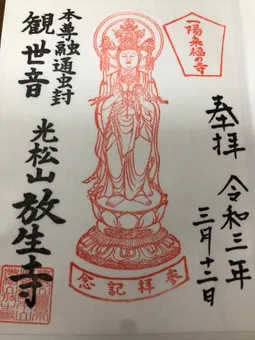 一陽来福の寺
奉拝
令和三年
三月十二日
本尊融通虫封
観世音
光松山
放生寺
参拝記念